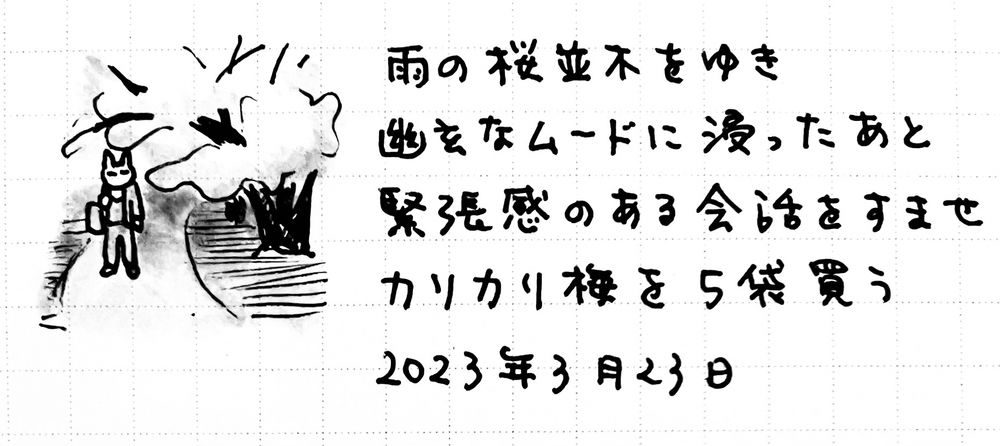 雨の桜並木をゆき
幽玄なムードに浸ったあと
緊張感のある会話をすませ
カリカリ梅を5袋買う
2023年3月23日